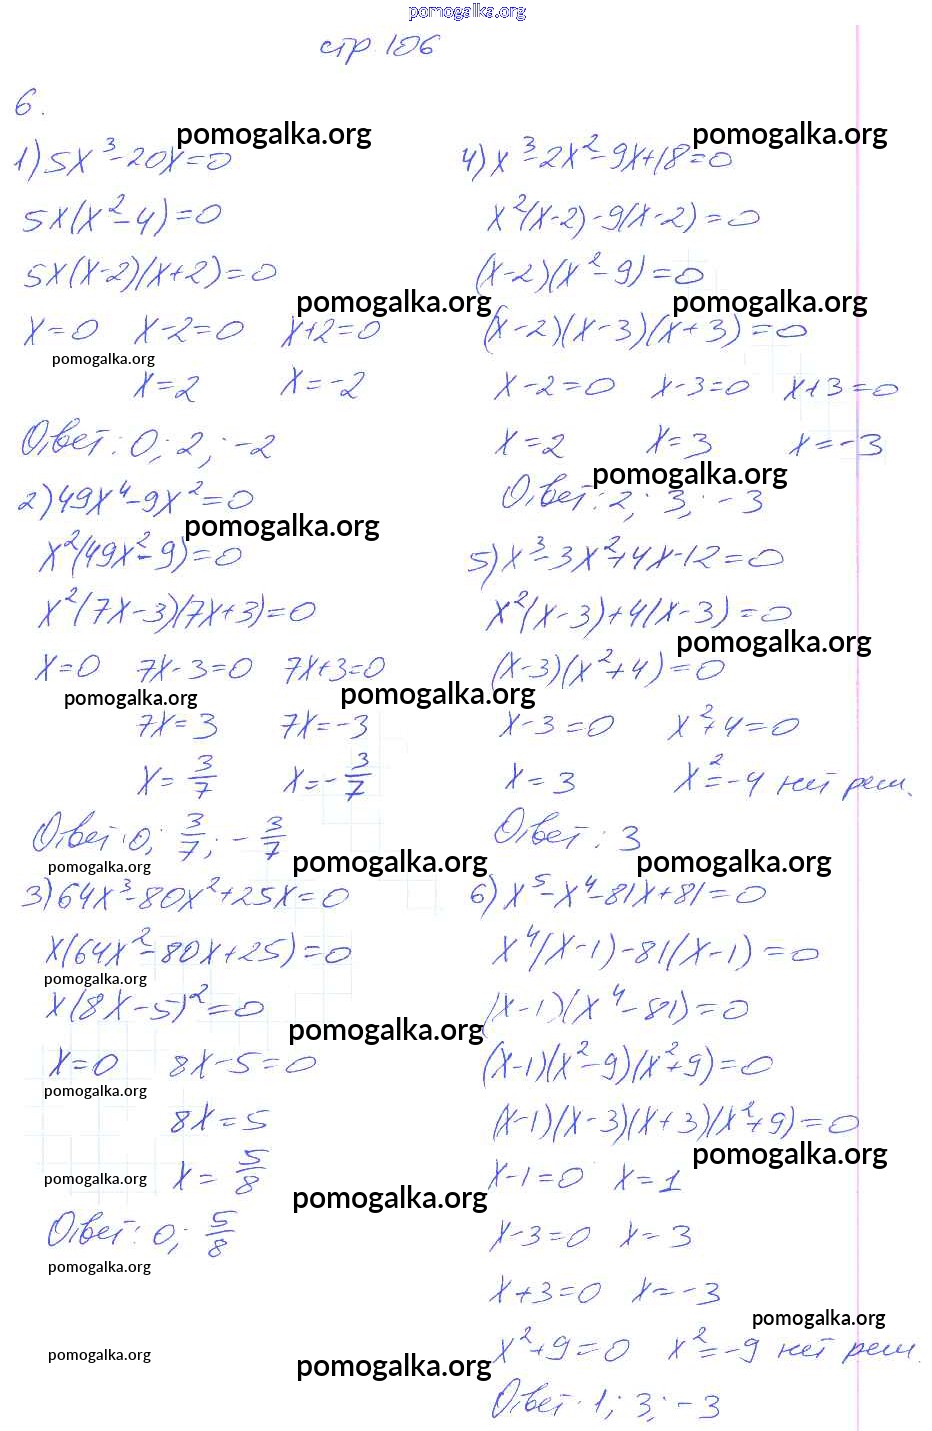 pomogalka.org
стр 106
6.
pomogalka.org
1) 5x³-20x=0
5x(x²-4)=0
5x(x-2)(x+2)=0
pomogalka.org
x=0 x-2=0 x+2=0
pomogalka.org
x=2 x=-2
Ответ: 0; 2; -2
2) 49x⁴-9x²=0
pomogalka.org
x²(49x²-9)=0
x²(7x-3)(7x+3)=0
x=0 7x-3=0 7x+3=0
pomogalka.org pomogalka.org
7x=3 7x=-3
x=3/7 x=-3/7
Ответ: 0; 3/7; -3/7
pomogalka.org pomogalka.org
3) 64x³-80x²+25x=0
x(64x²-80x+25)=0
pomogalka.org
x(8x-5)²=0
pomogalka.org
x=0 8x-5=0
pomogalka.org
8x=5
x=5/8
pomogalka.org pomogalka.org
Ответ: 0; 5/8
pomogalka.org
pomogalka.org pomogalka.org
pomogalka.org
4) x³-2x²-9x+18=0
x²(x-2)-9(x-2)=0
(x-2)(x²-9)=0
pomogalka.org
(x-2)(x-3)(x+3)=0
x-2=0 x-3=0 x+3=0
x=2 x=3 x=-3
pomogalka.org
Ответ: 2; 3; -3
5) x³-3x²+4x-12=0
x²(x-3)+4(x-3)=0
pomogalka.org
(x-3)(x²+4)=0
x-3=0 x²+4=0
x=3 x²=-4 нет реш.
Ответ: 3
pomogalka.org
6) x⁵-x⁴-81x+81=0
x⁴(x-1)-81(x-1)=0
(x-1)(x⁴-81)=0
(x-1)(x²-9)(x²+9)=0
(x-1)(x-3)(x+3)(x²+9)=0
pomogalka.org
x-1=0 x=1
x-3=0 x=3
x+3=0 x=-3
pomogalka.org
x²+9=0 x²=-9 нет реш.
Ответ: 1; 3; -3